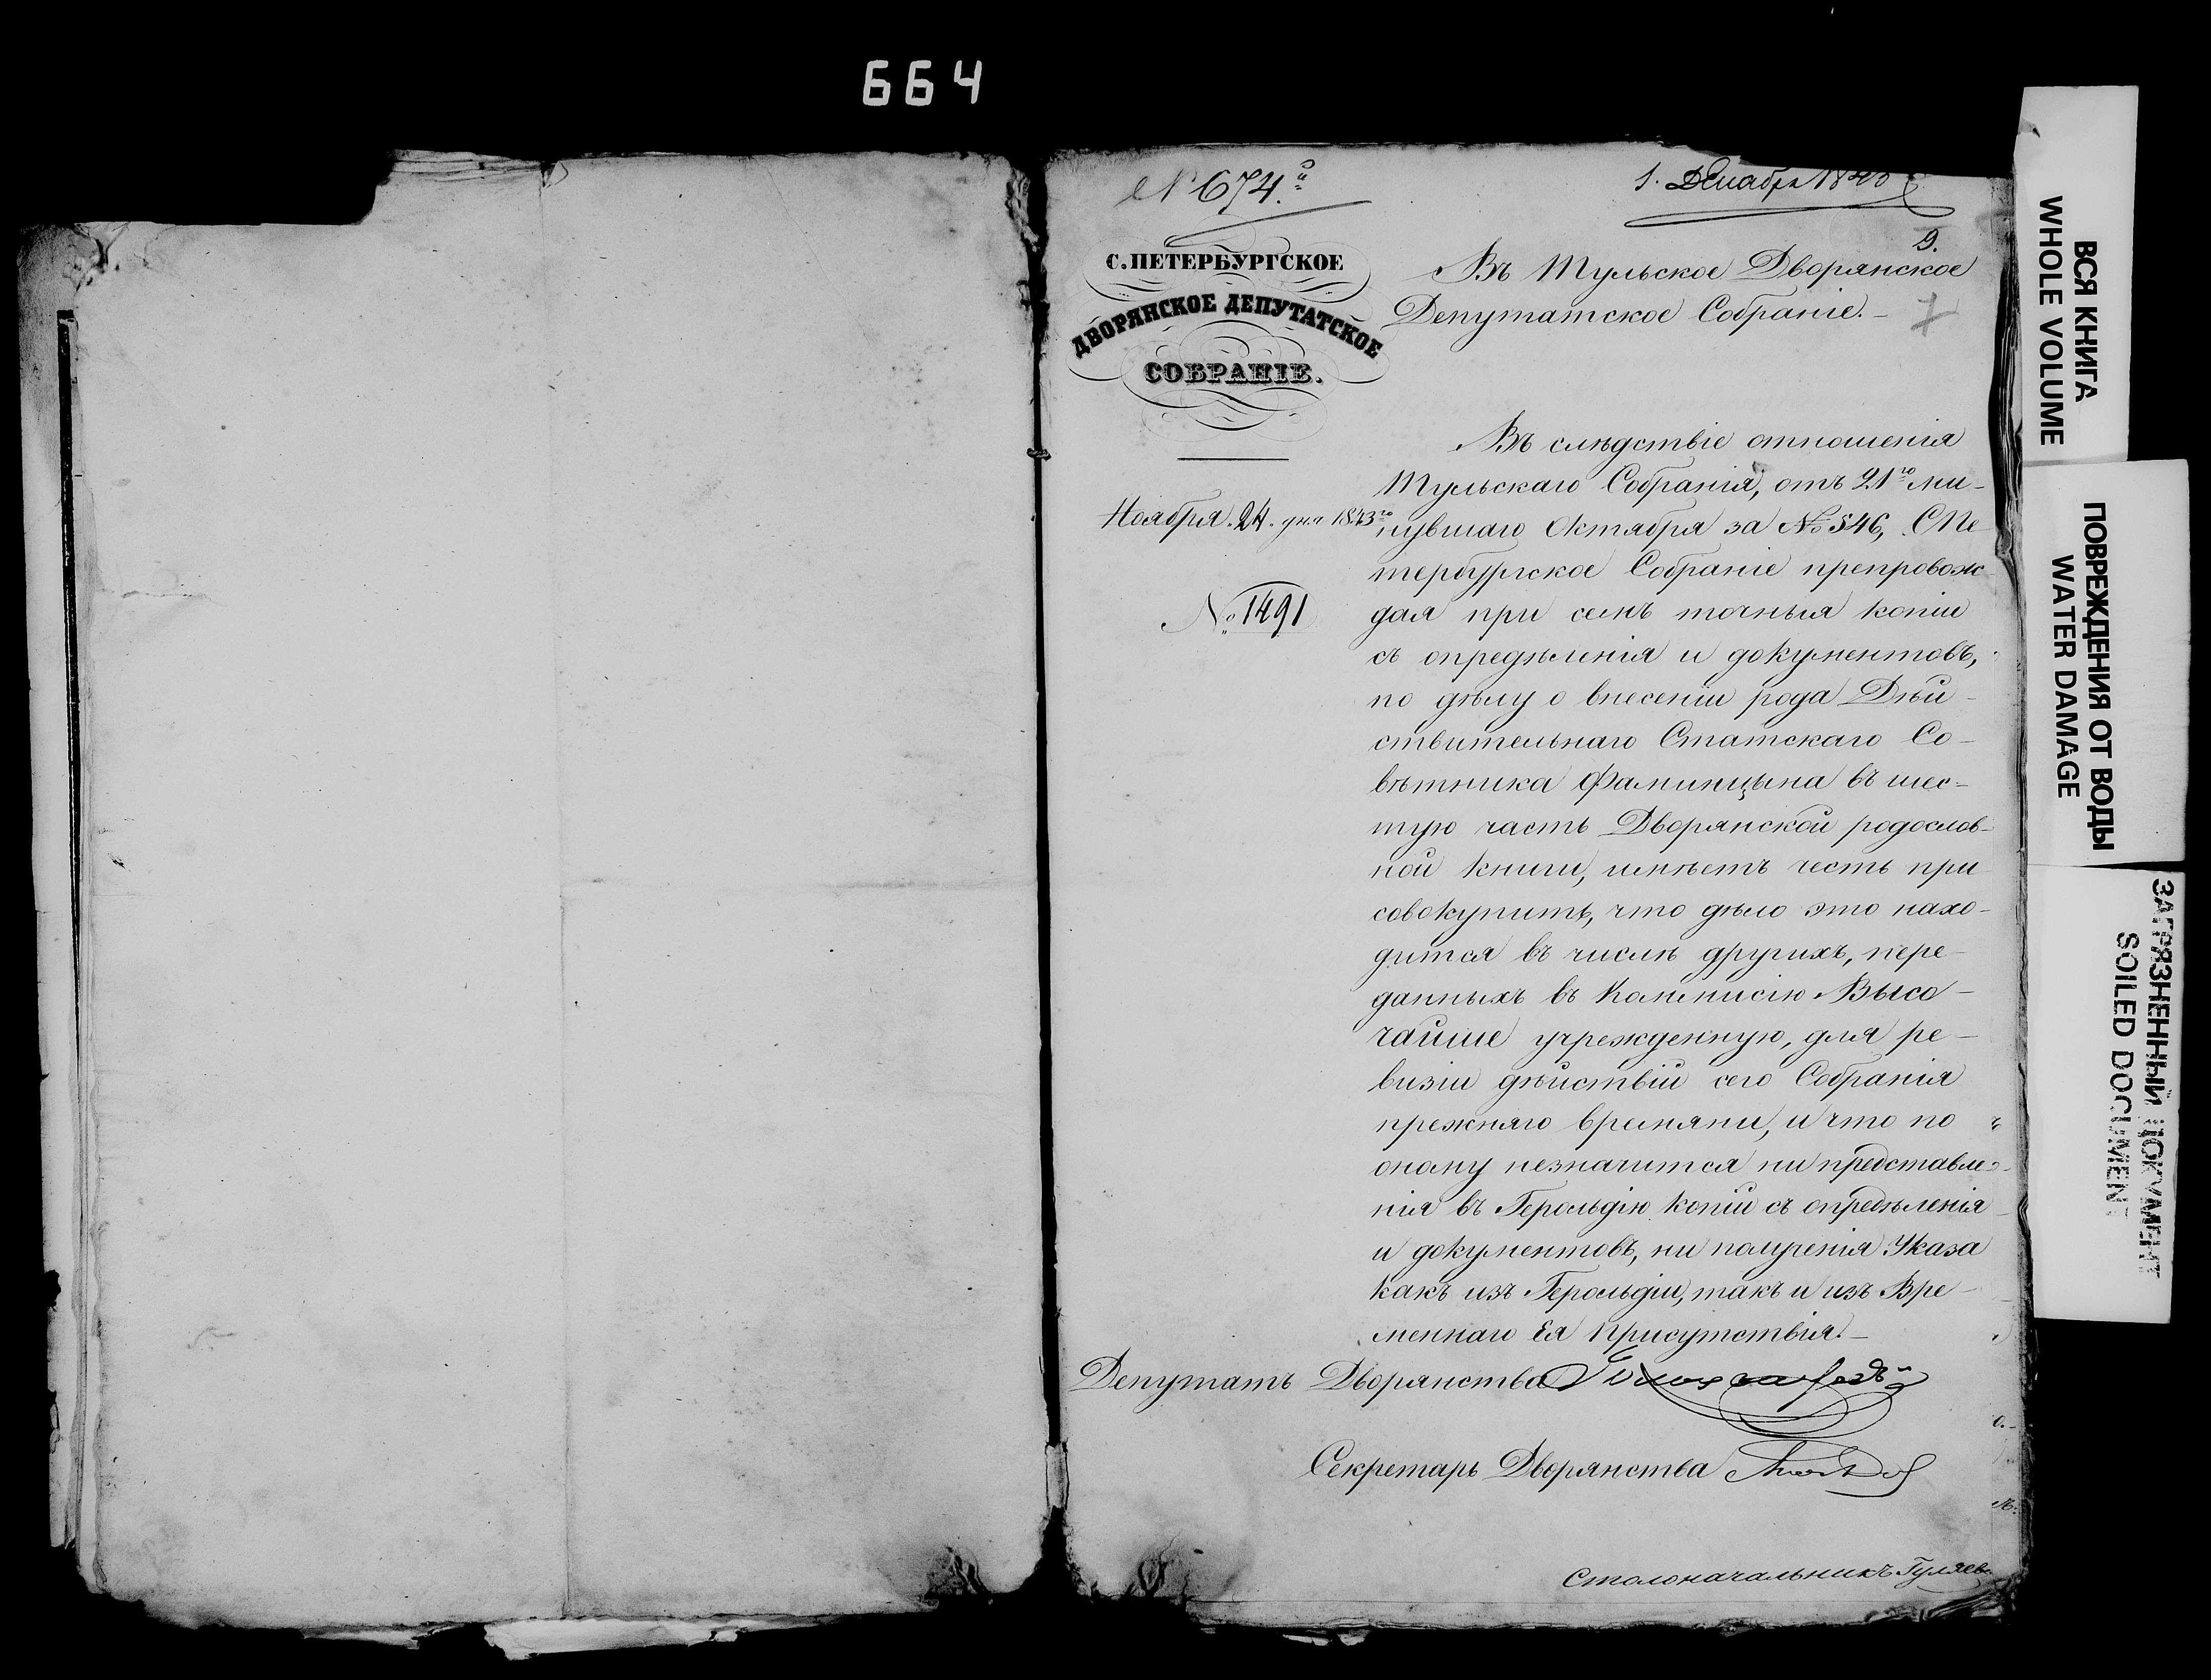 664
№ 674.
1. Декабря 1843
9.
С.ПЕТЕРБУРГСКОЕ
ДВОРЯНСКОЕ ДЕПУТАТСКОЕ
СОБРАНІЕ.
Ноября 24 дня 1843го
№ 1491
Въ Тульское Дворянское
Депутатское Собраніе.-
7
Въ слѣдствіе отношенія
Тульскаго Собранія, отъ 21го ми-
нувшаго Октября за № 546, СПе
тербургское Собраніе препровож
дая при семъ точныя копіи
съ опредѣленія и документовъ,
по дѣлу о внесеніи рода Дѣй-
ствительнаго Статскаго Со-
вѣтника Фаминцына въ шес-
тую часть Дворянской родослов-
ной книги, имѣетъ честь при
совокупить, что дѣло это нахо-
дится въ числѣ другихъ, пере-
данныхъ въ Коммисію Высо-
чайше учрежденную, для ре-
визіи дѣйствій сего Собранія
прежняго времяни, и что по
оному незначится ни представле-
нія въ Герольдію копій съ опредѣленія
и документовъ, ни полученія Указа
какъ изъ Герольдіи, такъ и изъ Вре-
меннаго Ея Присутствія.-
Депутатъ Дворянства
Секретарь Дворянства
Столоначальникъ Гуляев
ВСЯ КНИГА
WHOLE VOLUME
ПОВРЕЖДЕНИЯ ОТ ВОДЫ
WATER DAMAGE
ЗАГРЯЗНЕННЫЙ ДОКУМЕНТ
SOILED DOCUMENT